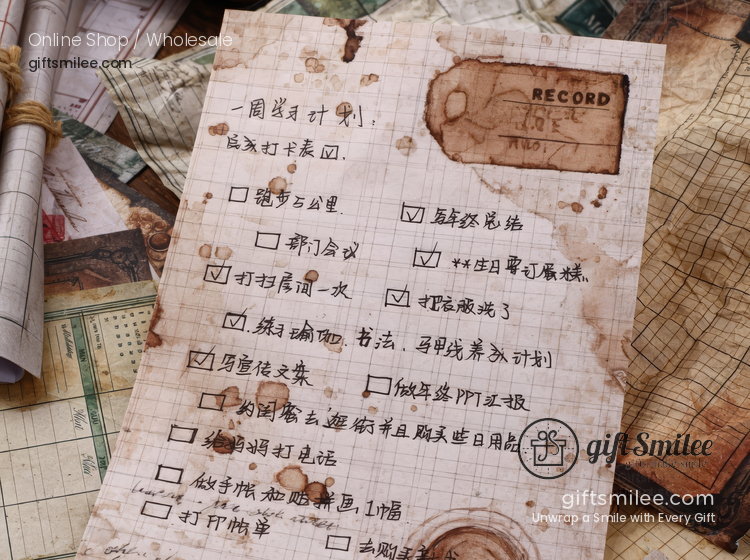 Online Shop / Wholesale
giftsmilee.com
RECORD
一周学习计划:
完成打卡表☑.
☐ 跑步5公里.
☑ 写年终总结
☐ 部门会议
☑ **生日要订蛋糕.
☑ 打扫房间一次
☑ 把衣服洗了
☑ 练习瑜伽、书法、马甲线养成计划
☑ 写宣传文案
☐ 做年终PPT汇报
☐ 约闺密去逛街并且购买些日用品
☐ 给妈妈打电话
☐ 做手帐和贴拼画1幅
☐ 打印帐单
☐ 去购买
gift Smilee
giftsmilee.com
Unwrap a Smile with Every Gift